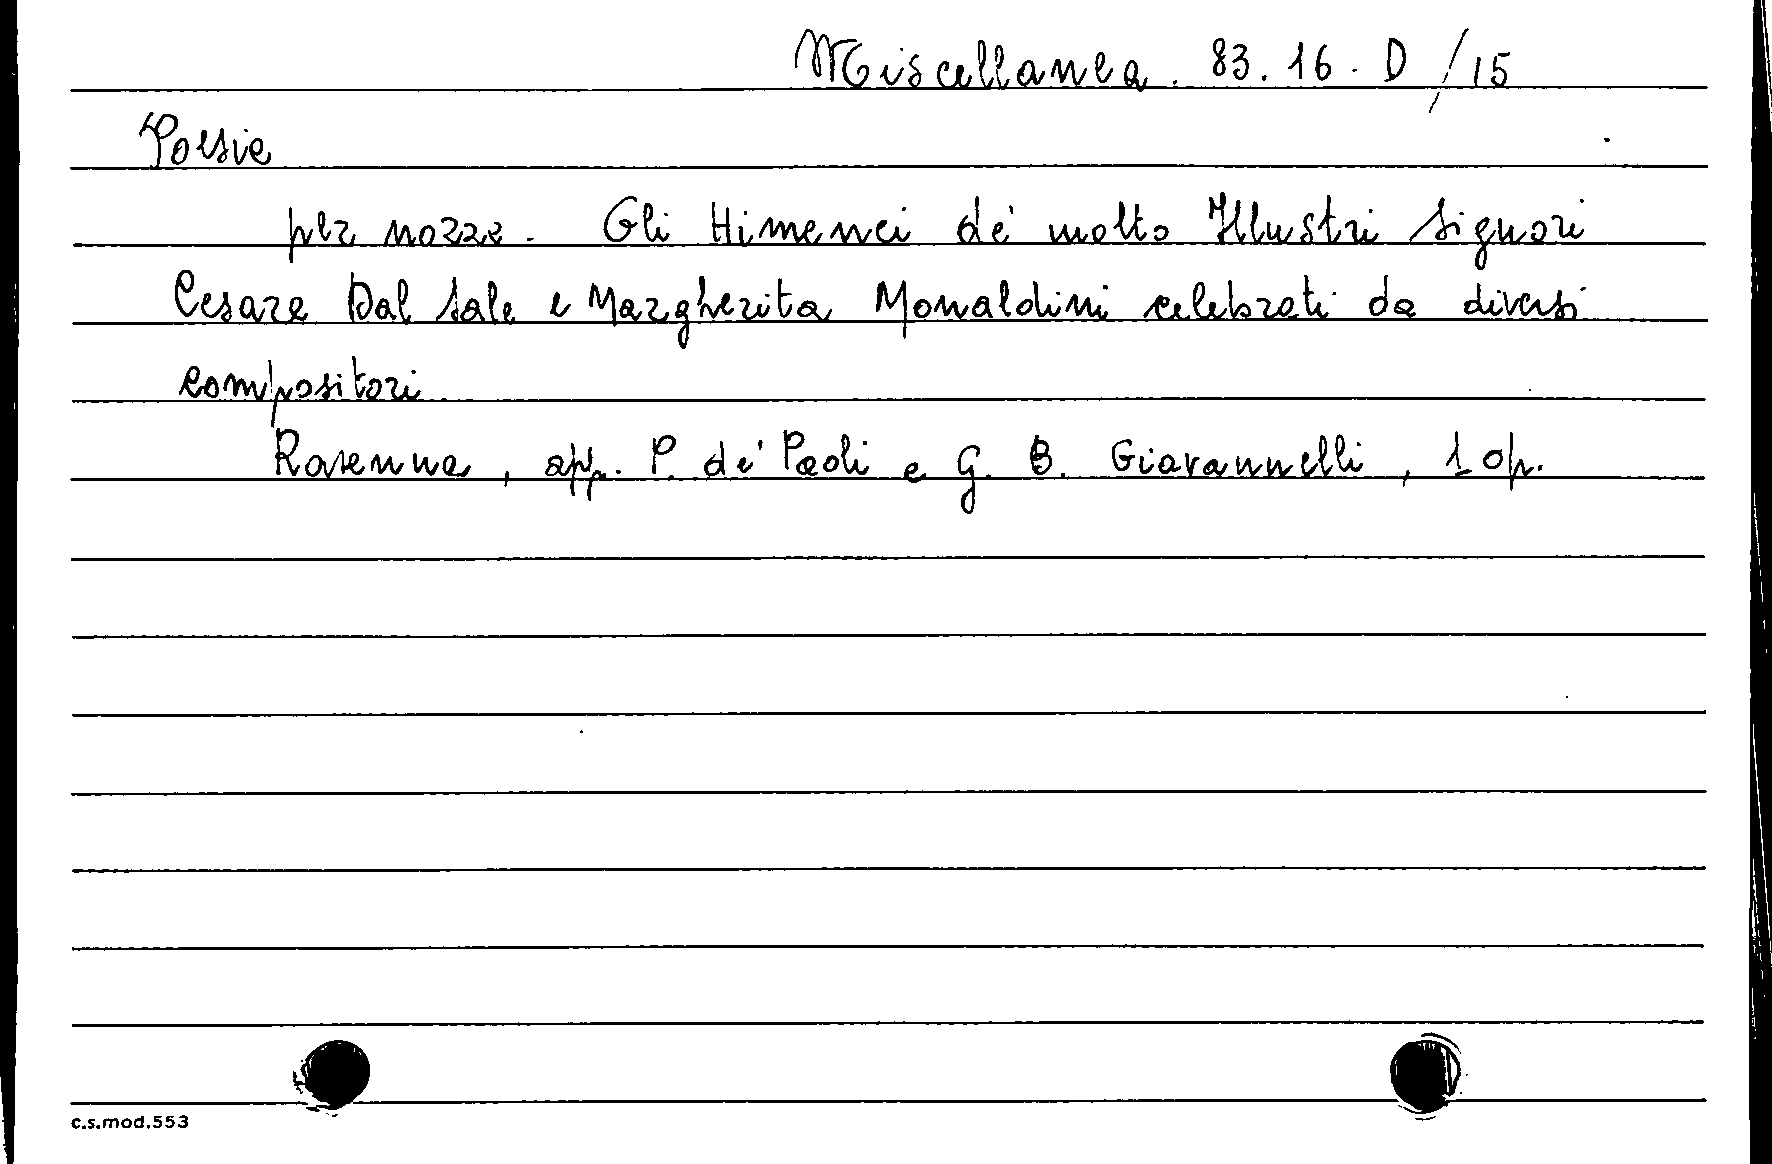 Miscellanea. 83. 16. D /15
Poesie
per nozze. Gli Himenei de' molto Illustri Signori
Cesare Dal Sale e Margherita Monaldini celebrati da diversi
compositori
Ravenna, app. P. de' Paoli e G. B. Giovannelli, 1 op.
c.s.mod.553